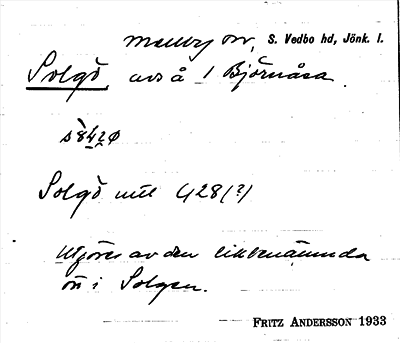 Mellby sn, S. Vedbo hd, Jönk. l.
Solgö, avs å 1 Björnåsa.
Solgö
Utgöres av den likbenämnda
ön i Solgen.
FRITZ ANDERSSON 1933